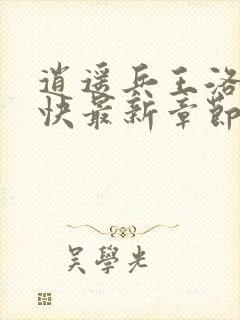 逍遥兵王洛
快最新章節
吳學光